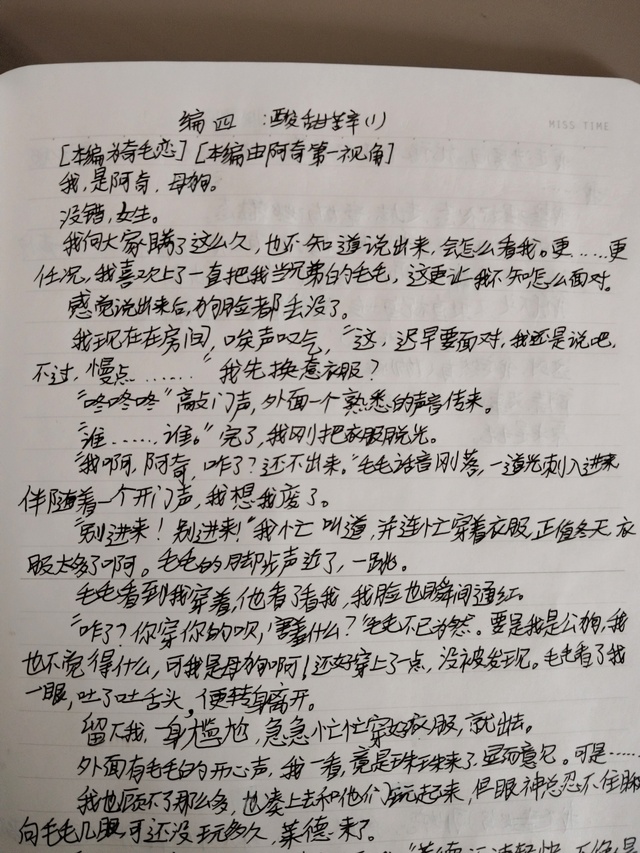 编四:酸甜辛(1)
MISS TIME
[本编为奇毛恋][本编由阿奇第一视角]
我,是阿奇,母狗。
没错,女生。
我向大家瞒了这么久,也不知道说出来,会怎么看我。更……更
任况,我喜欢上了一直把我当兄弟的毛毛,这更让我不知怎么面对。
感觉说出来后,狗脸都丢没了。
我现在在房间,唉声叹气,“这,迟早要面对,我还是说吧,
不过,慢点……”我先换惹衣服?
“咚咚咚”敲门声,外面一个熟悉的声音传来。
“谁……谁。”完了,我刚把衣服脱光。
“我啊,阿奇,咋了?还不出来。”毛毛话音刚落,一道光刺入进来
伴随着一个开门声,我想我废了。
“别进来!别进来!”我忙叫道,并连忙穿着衣服,正值冬天,衣
服太多了啊。毛毛的脚步声近了,一跳。
毛毛看到我穿着,他看了看我,我脸也瞬间通红。
“咋了?你穿你的呗,害羞什么?”毛毛不已为然。要是我是公狗,我
也不觉得什么,可我是母狗啊!还好穿上了一点,没被发现。毛毛看了我
一眼,吐了吐舌头,便转身离开。
留下我,一身尴尬,急急忙忙穿好衣服,就出去。
外面有毛毛的开心声,我一看,竟是珠珠来了,显而意见。可是……
我也顾不了那么多,也凑上去和他们玩起来,但眼神总忍不住瞅
向毛毛几眼,可还没玩多久,莱德来了。